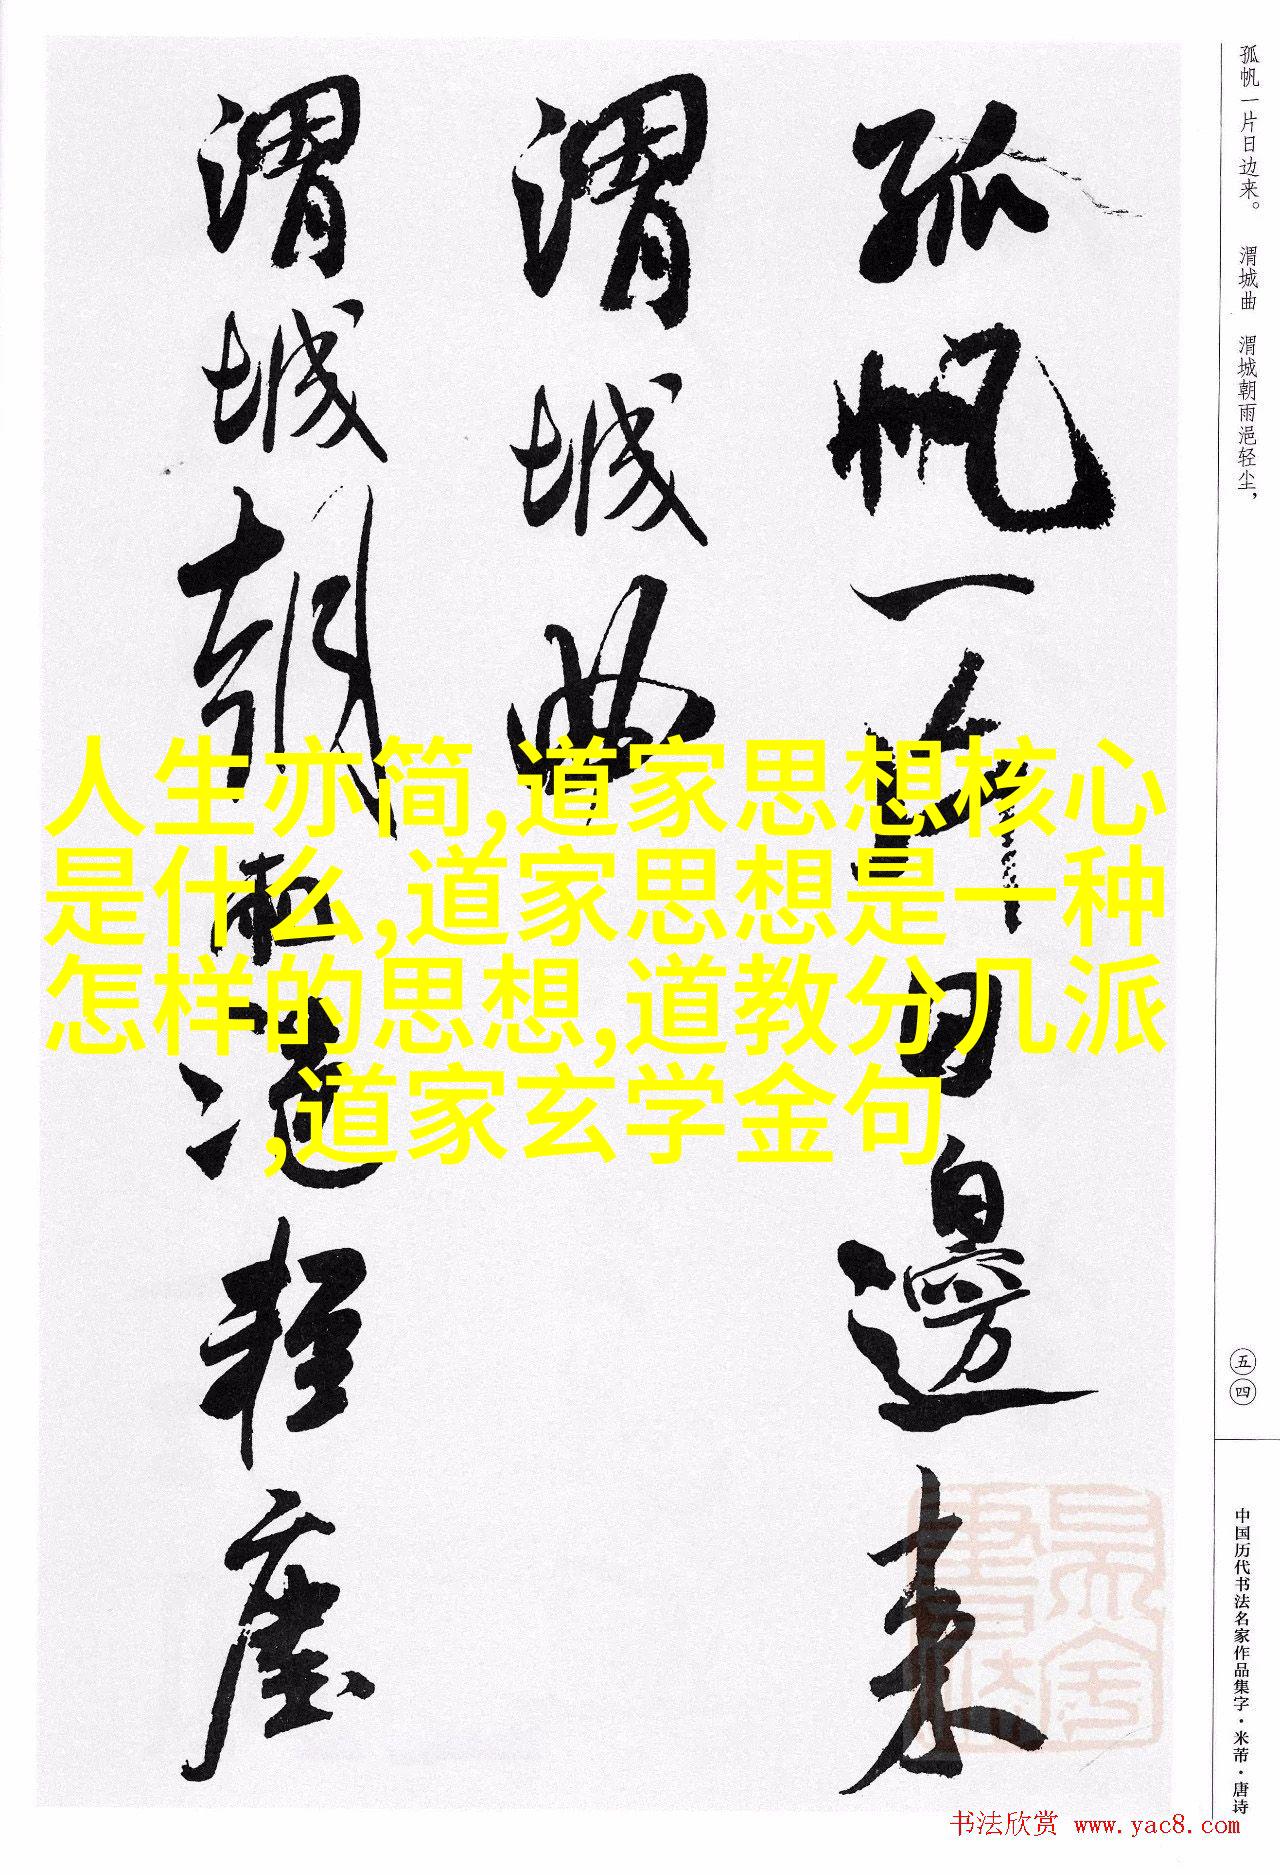 孤帆一片日边来。 渭城曲 渭城朝雨浥轻尘，
孤帆一片日邊来
渭城曲
渭城朝雨浥轻塵
人生亦简,道家思想核心
是什么,道家思想是一种
怎样的思想,道教分几派
,道家玄学金句
五四
中国历代书法名家作品集字·米芾·唐诗
书法欣赏 www.yac8.com